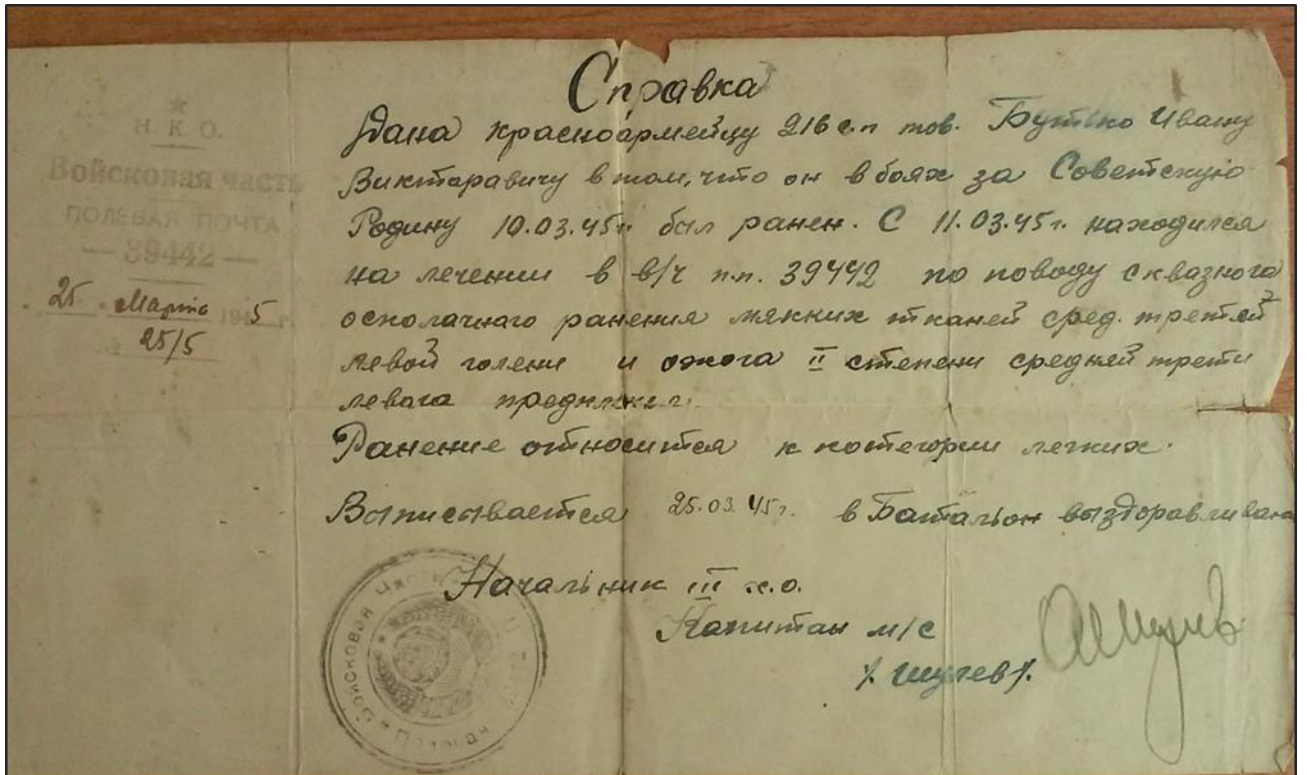 Н. К. О.
Войсковая часть
ПОЛЕВАЯ ПОЧТА
— 39442 —
25 Марта 1945 г.
25/5
Справка
Дана красноармейцу 216 с.п тов. Бутько Ивану
Виктаравичу в том, что он в боях за Советскую
Родину 10.03.45г. был ранен. С 11.03.45г. находился
на лечении в в/ч п.п. 39442 по поводу сквазного
осколачного ранения мякких тканей сред. третей
левой голени и ожога II степени средней трети
левага
Ранение относится к котегории легких.
Выписывается 25.03.45г. в Батальон
Начальник III х.о.
Капитан м/с
Войсковая
Полевая